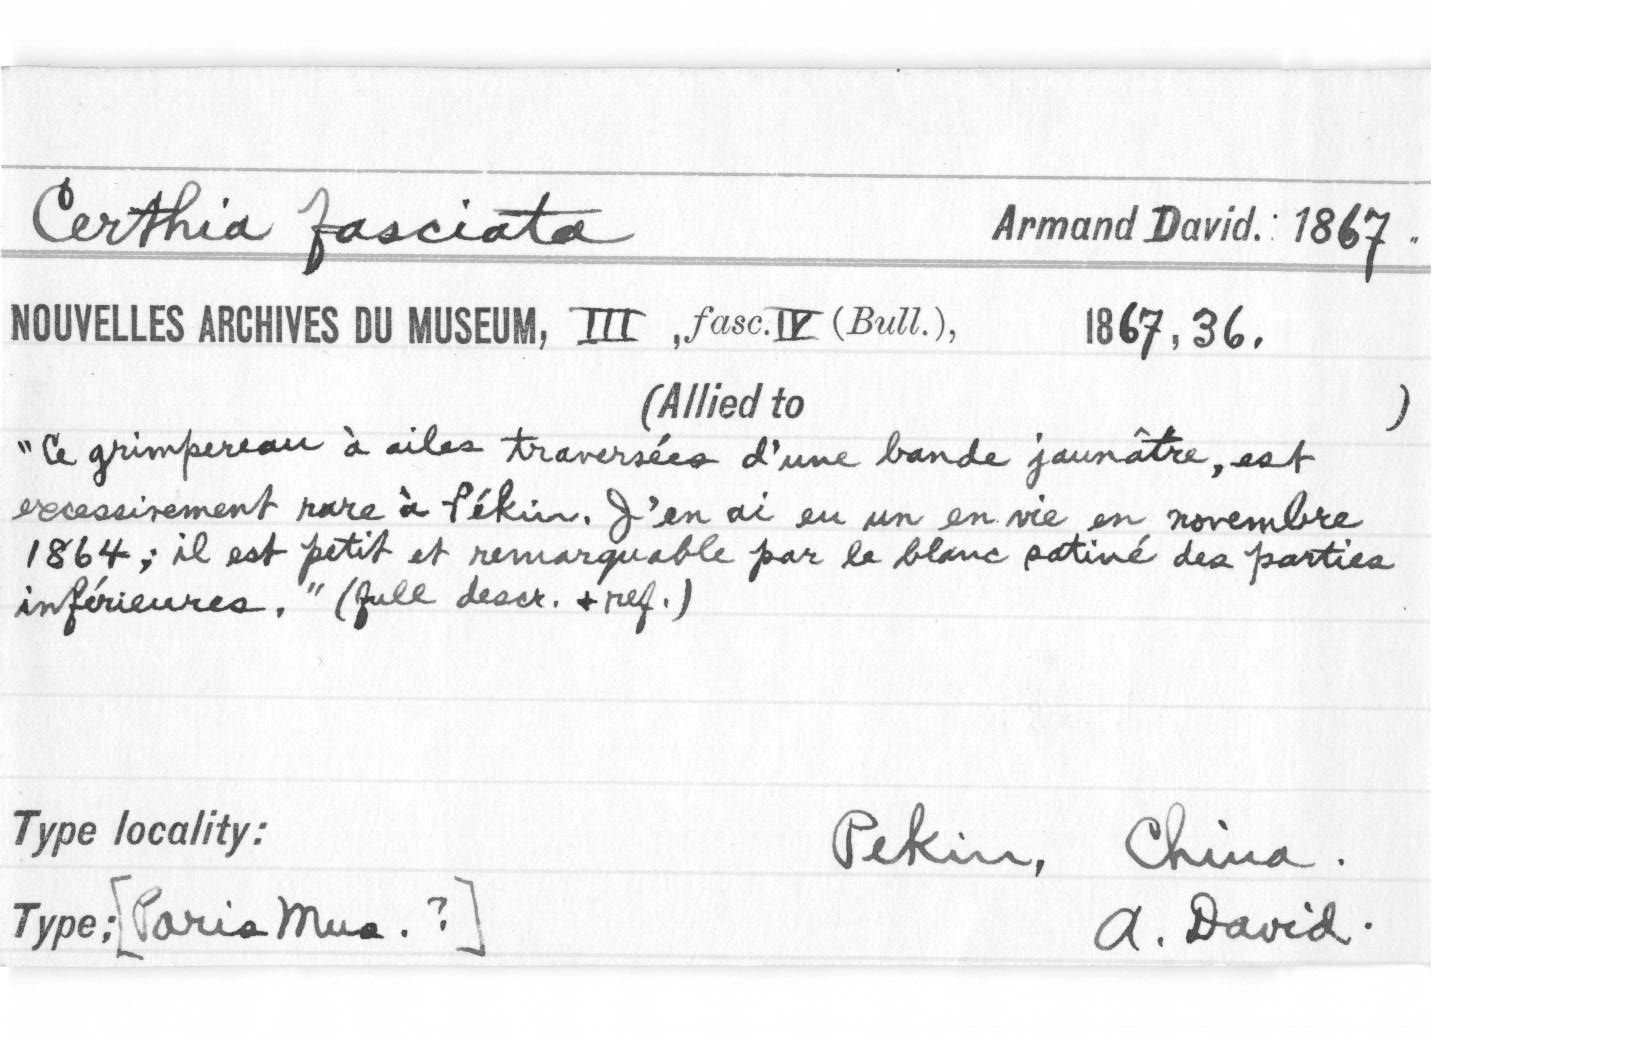 Certhia fasciata Armand David. : 1867.
NOUVELLES ARCHIVES DU MUSEUM, III , fasc. IV (Bull.), 1867, 36.
(Allied to )
"Ce grimpereau à ailes traversées d'une bande jaunâtre, est
excessivement rare à Pékin. J'en ai eu un en vie en novembre
1864; il est petit et remarquable par le blanc satiné des parties
inférieures." (full descr. + ref.)
Type locality: Pekin, China.
Type; [Paris Mus. ?] A. David.